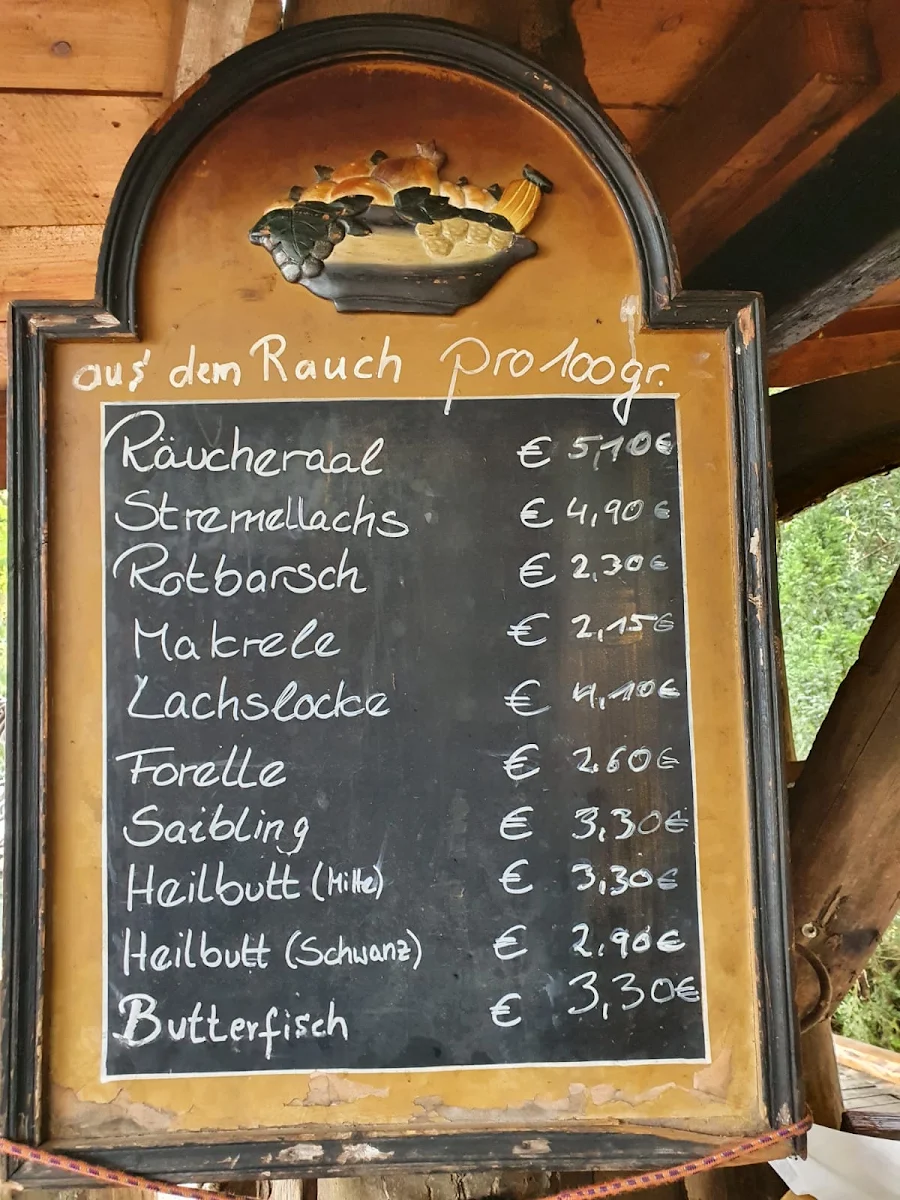 aus dem Rauch pro 100gr.
Räucheraal € 5,10€
Stremellachs € 4,90€
Rotbarsch € 2,30€
Makrele € 2,15€
Lachslocke € 4,10€
Forelle € 2.60€
Saibling € 3,30€
Heilbutt (Mitte) € 3,30€
Heilbutt (Schwanz) € 2,90€
Butterfisch € 3,30€